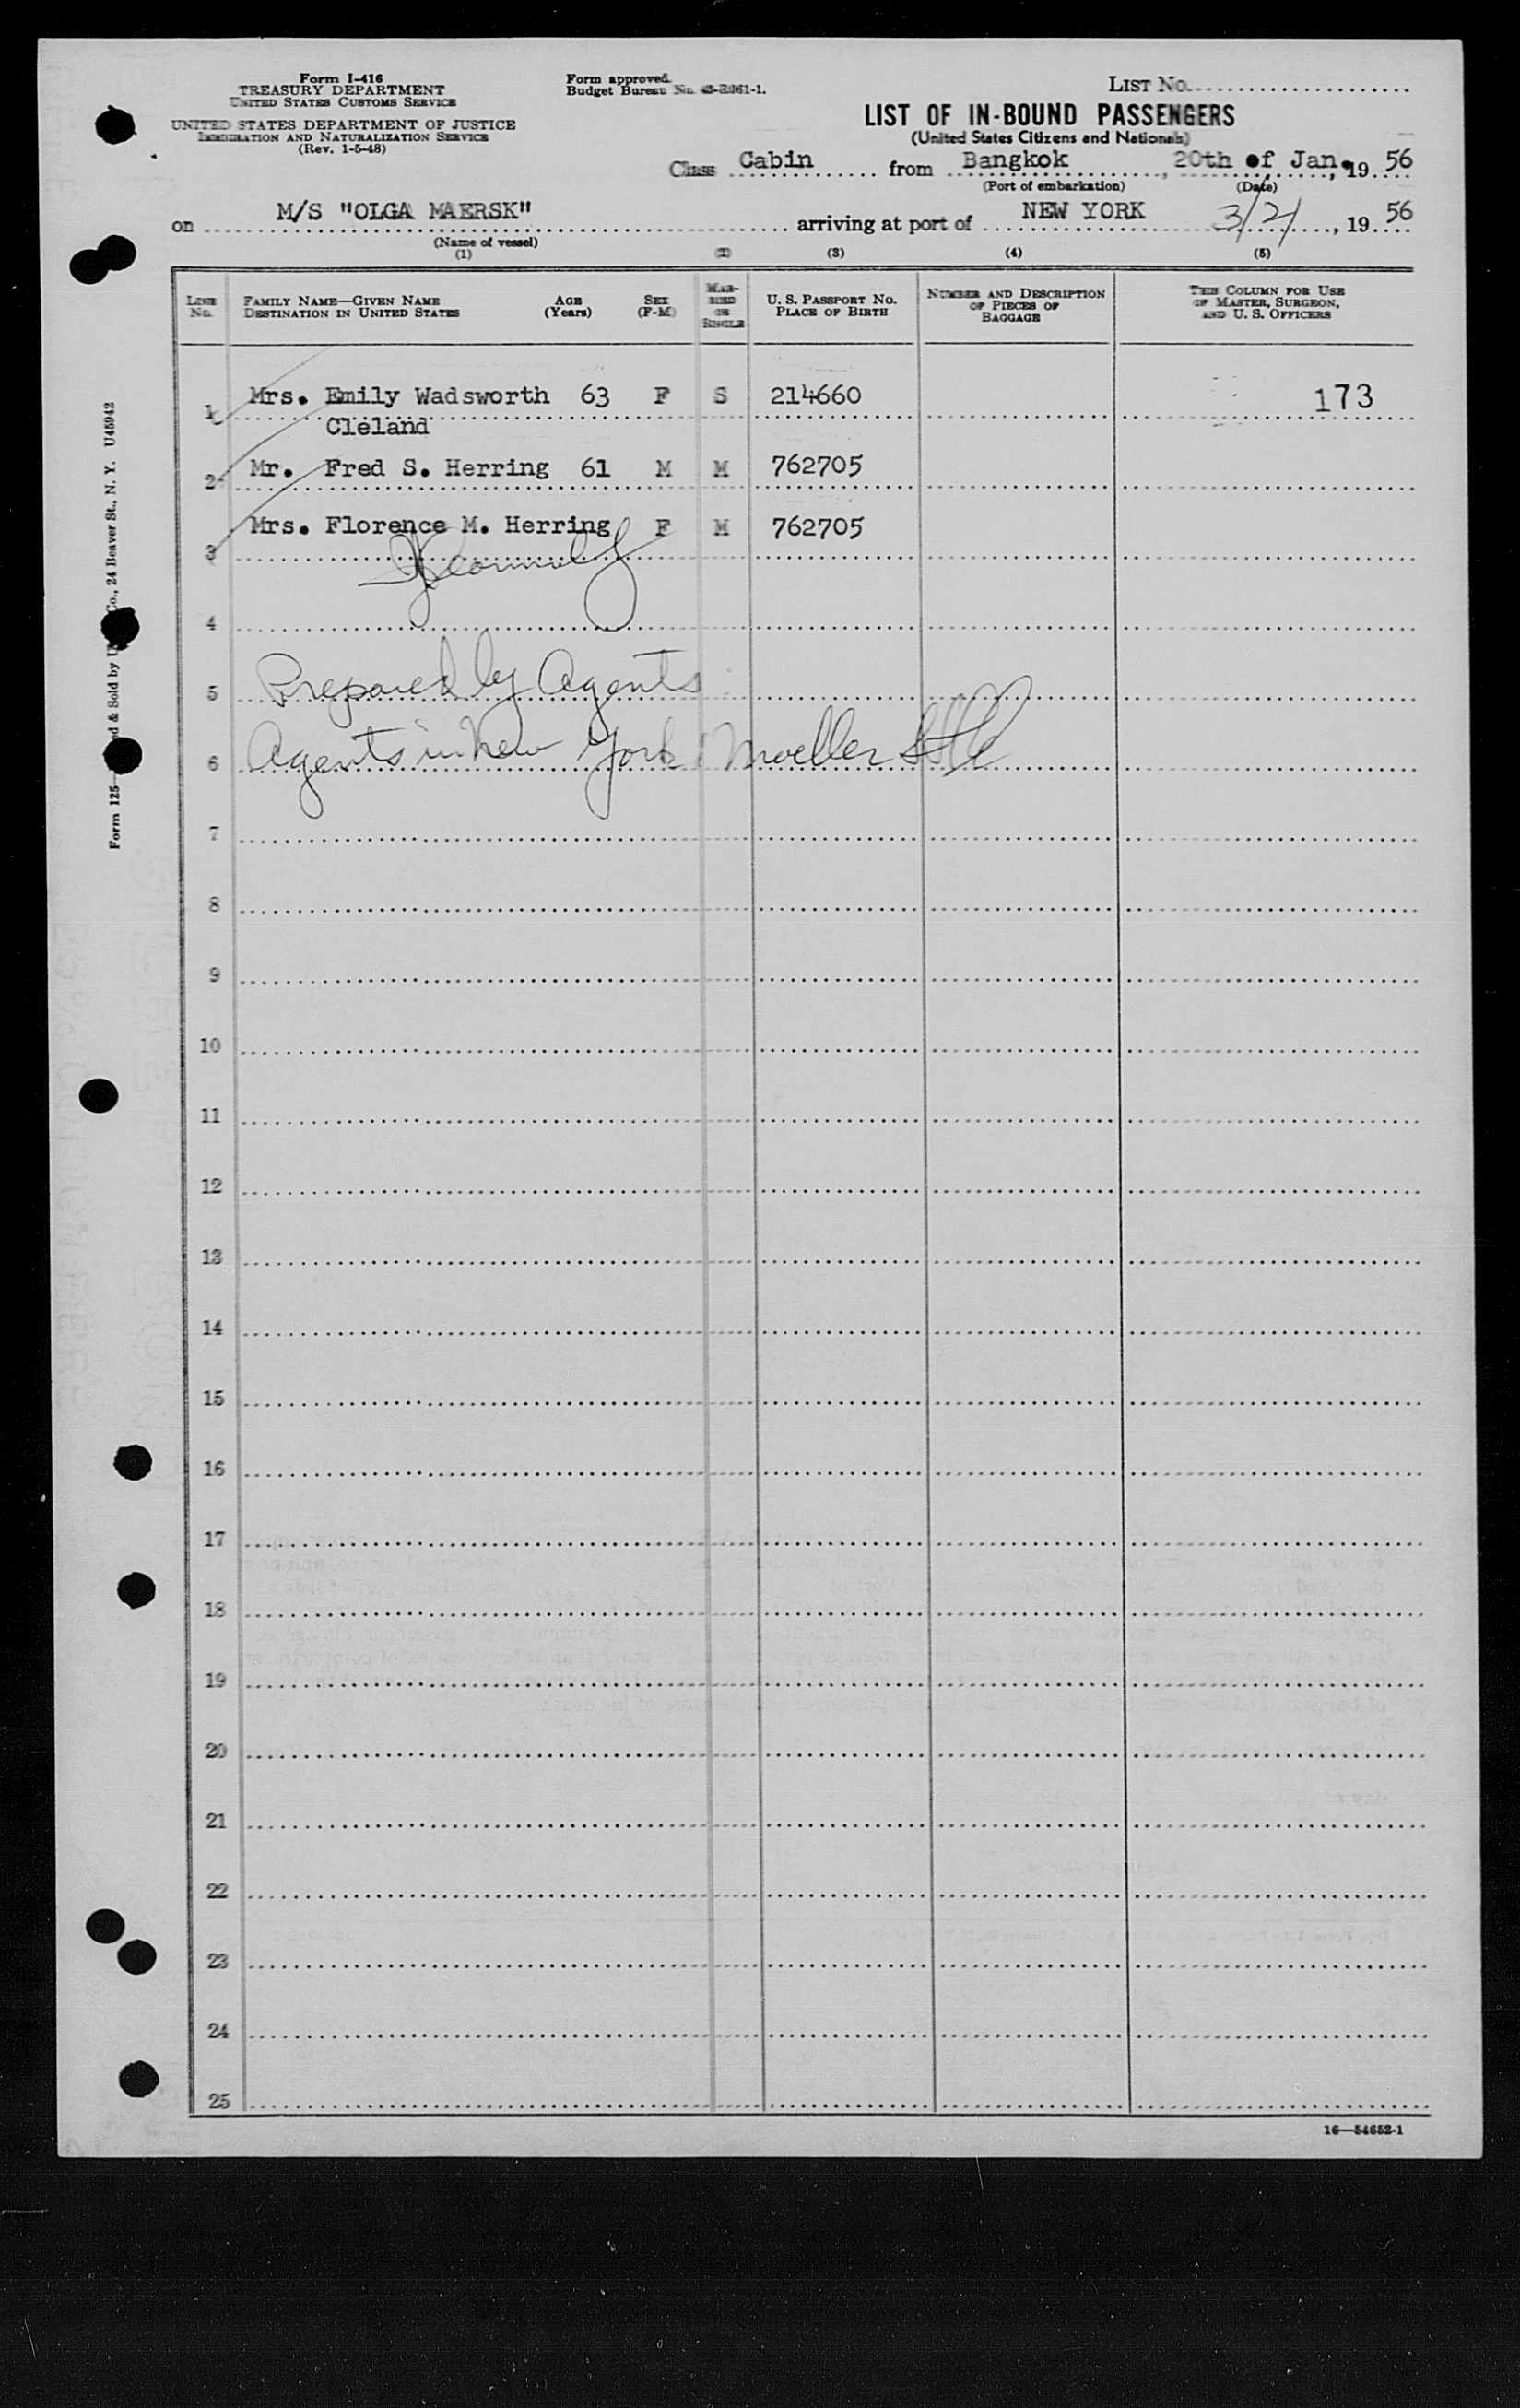 Form I-416
TREASURY DEPARTMENT
UNITED STATES CUSTOMS SERVICE
UNITED STATES DEPARTMENT OF JUSTICE
IMMIGRATION AND NATURALIZATION SERVICE
(Rev. 1-5-48)
Form approved.
Budget Bureau No.
LIST No.
LIST OF IN-BOUND PASSENGERS
(United States Citizens and Nationals)
Class Cabin from Bangkok, 20th of Jan., 19 56
(Port of embarkation) (Date)
on M/S "OLGA MAERSK" arriving at port of NEW YORK 3/21, 19 56
(Name of vessel)
(1) (2) (3) (4) (5)
LINE No. FAMILY NAME—GIVEN NAME DESTINATION IN UNITED STATES AGE (Years) SEX (F-M) MARRIED OR SINGLE U. S. PASSPORT NO. PLACE OF BIRTH NUMBER AND DESCRIPTION OF PIECES OF BAGGAGE THIS COLUMN FOR USE OF MASTER, SURGEON, AND U. S. OFFICERS
1 Mrs. Emily Wadsworth 63 F S 214660 173
Cleland
2 Mr. Fred S. Herring 61 M M 762705
3 Mrs. Florence M. Herring F M 762705
4
5 Prepared by Agents
6 Agents in New York Moeller
7
8
9
10
11
12
13
14
15
16
17
18
19
20
21
22
23
24
25
16—54652-1
Form 125 & Sold by Co., 24 Beaver St., N. Y. U45942